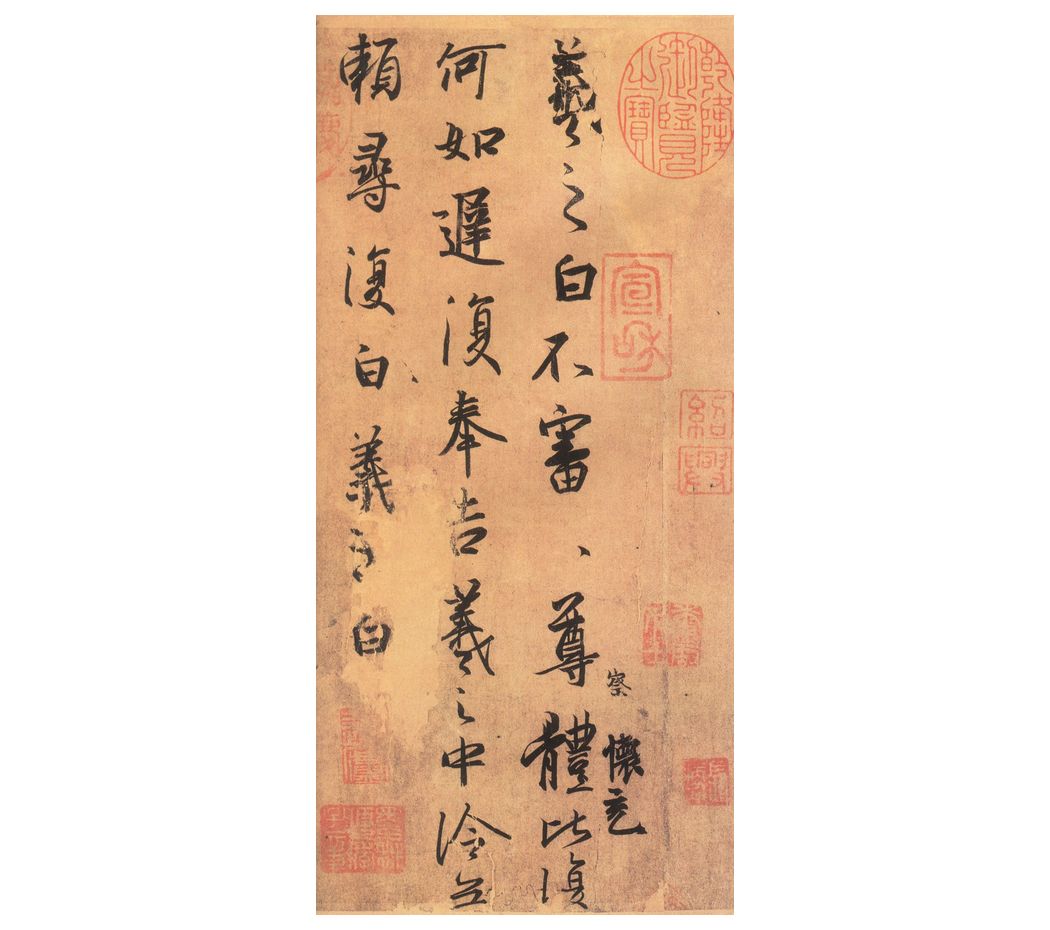 羲之白不審、尊體比復
何如遲復奉告羲之中冷無
賴尋復白羲之白
察
懷充
乾隆御覽之寶
宣和
紹興